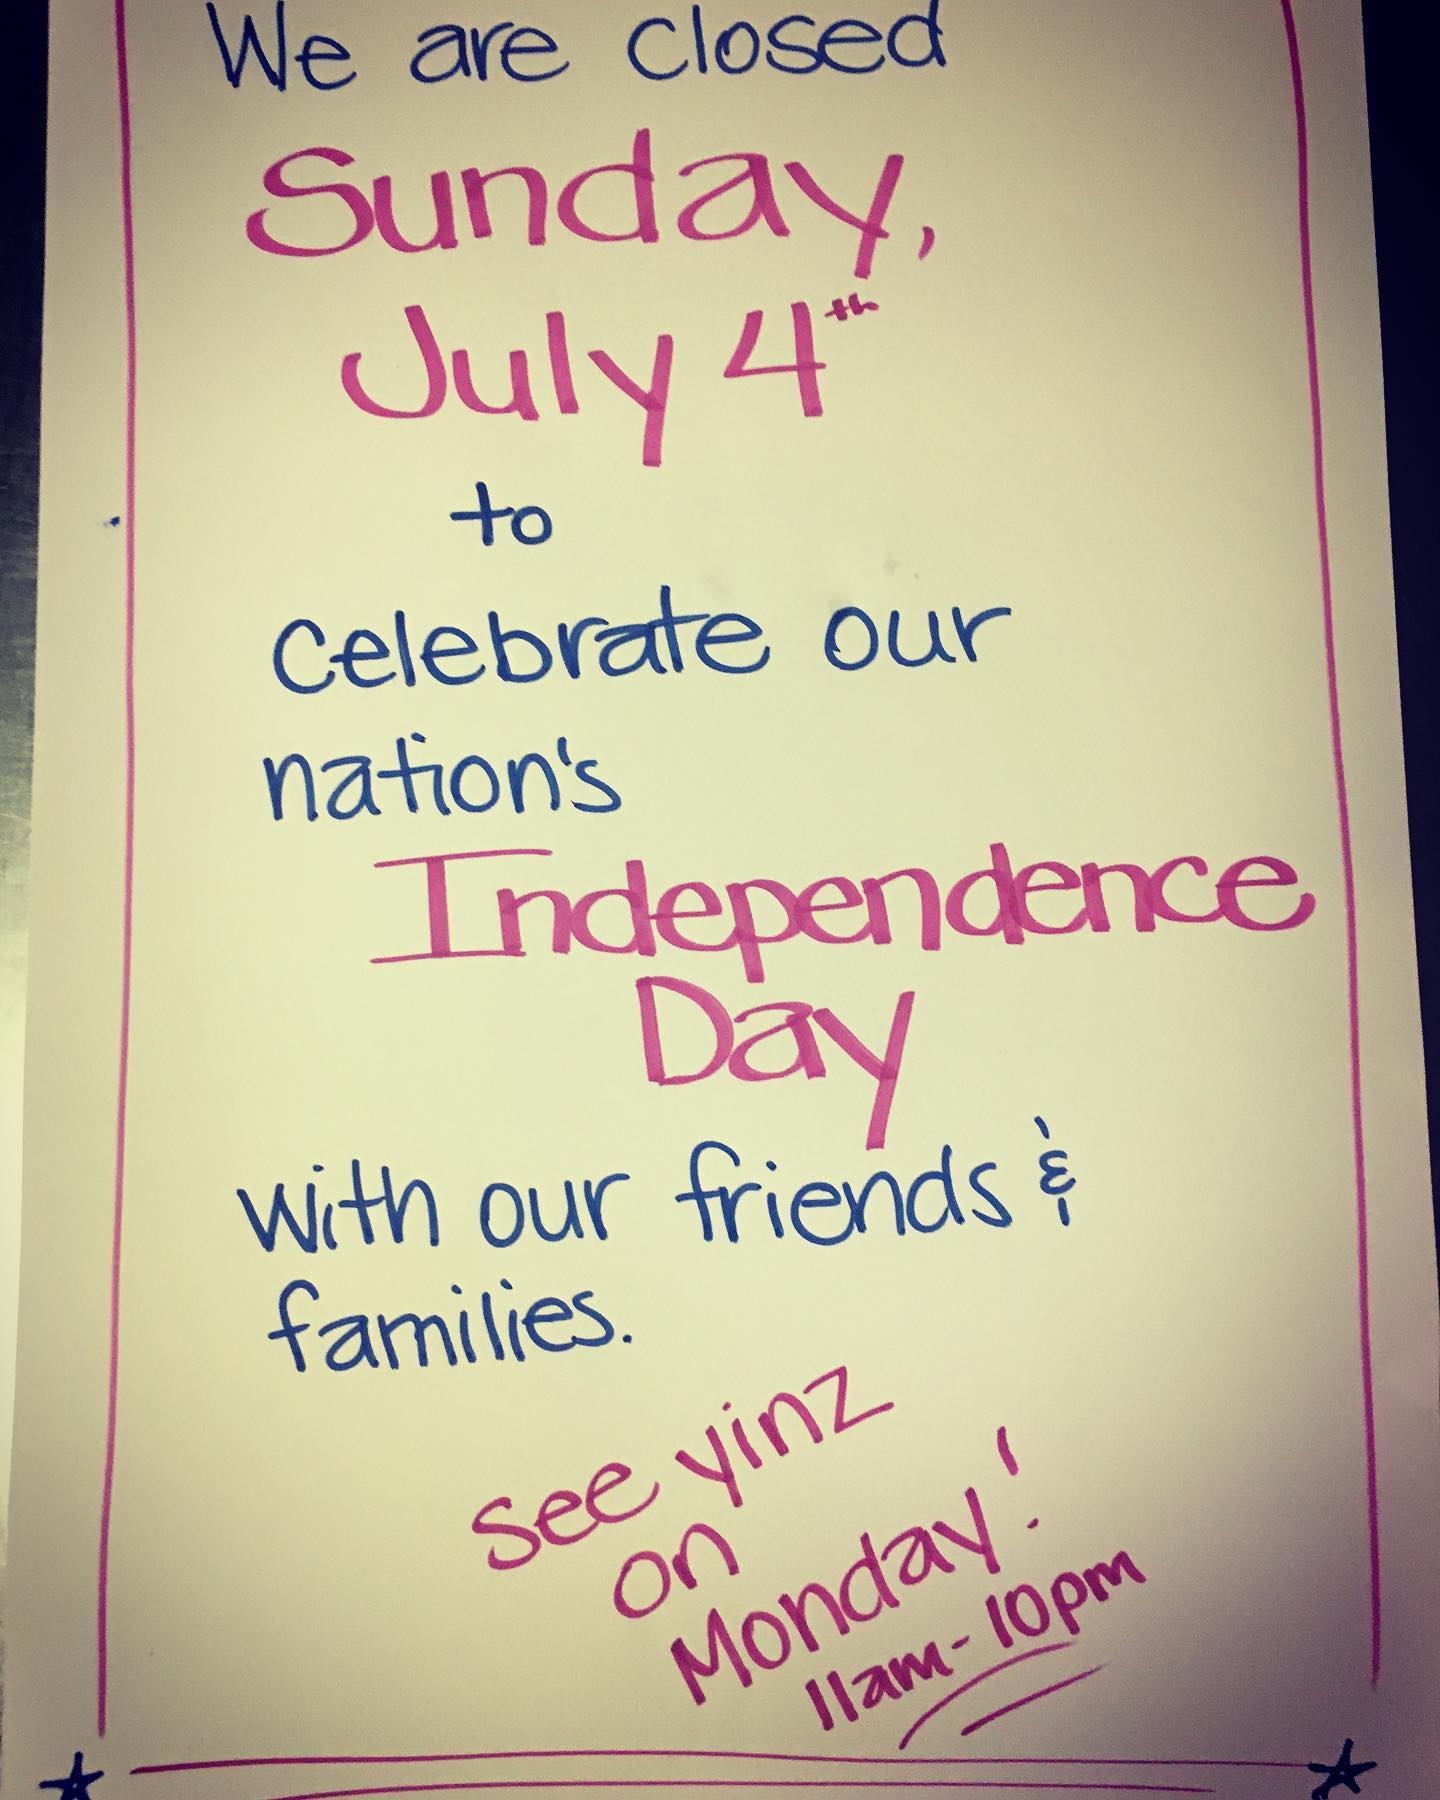 We are closed
Sunday,
July 4th
to
celebrate our
nation's
Independence
Day
with our friends &
families.
see yinz
on
Monday!
11am-10pm